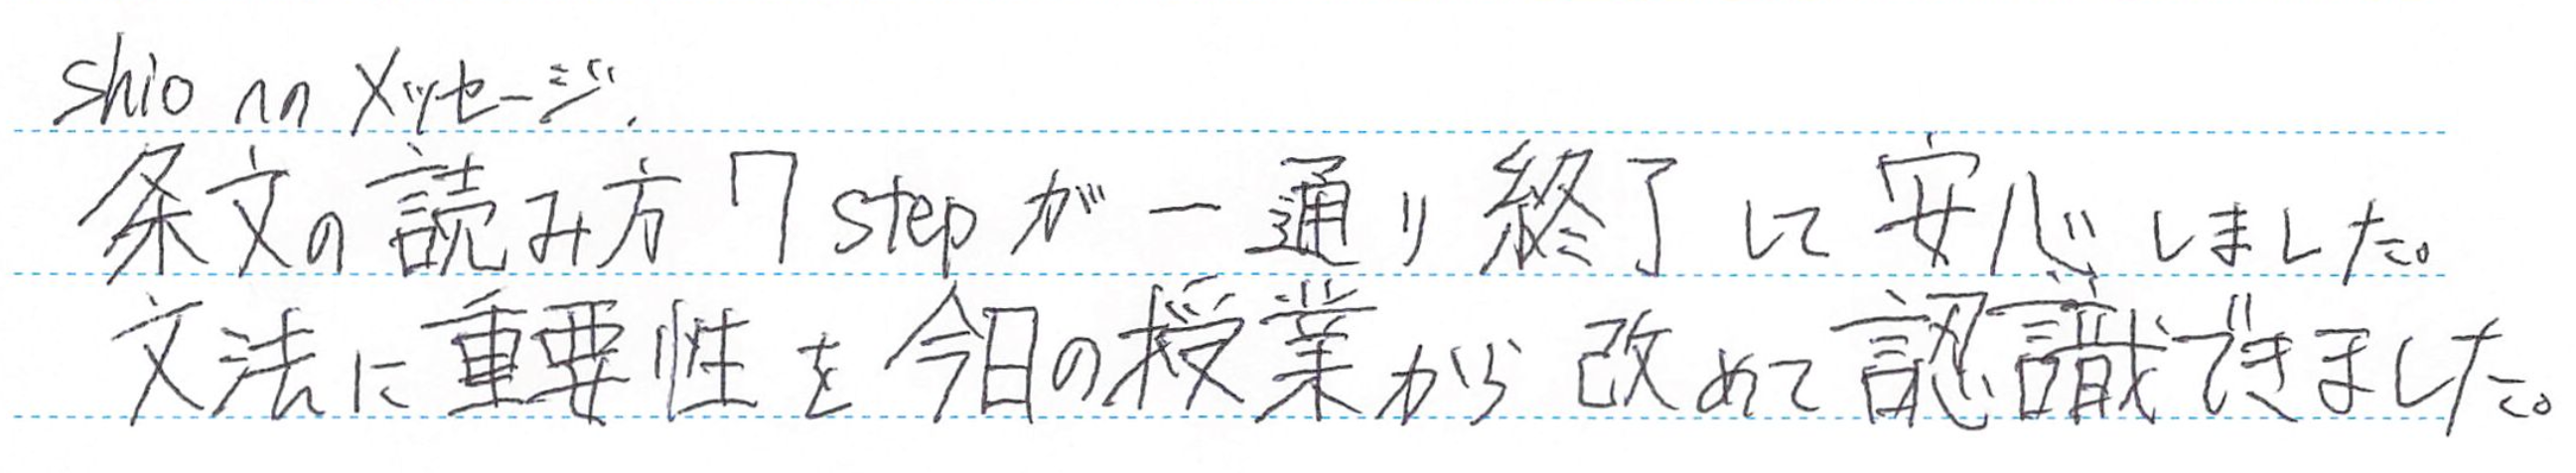 shio へのメッセージ.
条文の読み方 7 step が一通り終了して安心しました。
文法に重要性を今日の授業から改めて認識できました。